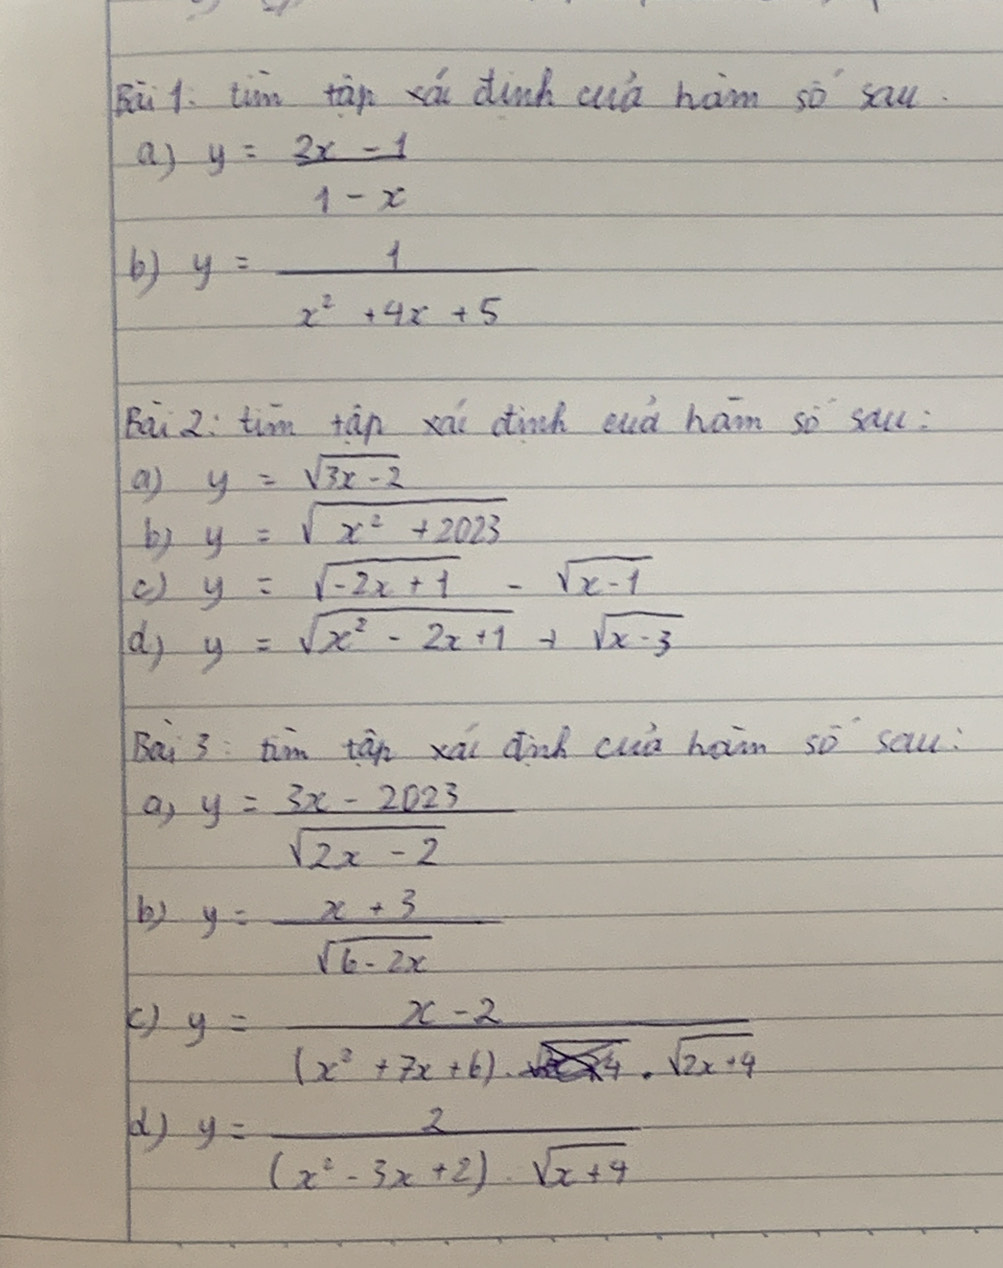 Bài 1: tìm tập xác định của hàm số sau.
a) y = \frac{2x - 1}{1 - x}
b) y = \frac{1}{x² + 4x + 5}
Bài 2: tìm tập xác định của hàm số sau:
a) y = √(3x - 2)
b) y = √(x² + 2023)
c) y = √(-2x + 1) - √(x - 1)
d) y = √(x² - 2x + 1) + √(x - 3)
Bài 3: tìm tập xác định của hàm số sau:
a) y = \frac{3x - 2023}{√(2x - 2)}
b) y = \frac{x + 3}{√(6 - 2x)}
c) y = \frac{x - 2}{(x² + 7x + 6) . √(2x + 4)}
d) y = \frac{2}{(x² - 3x + 2) . √(x + 4)}